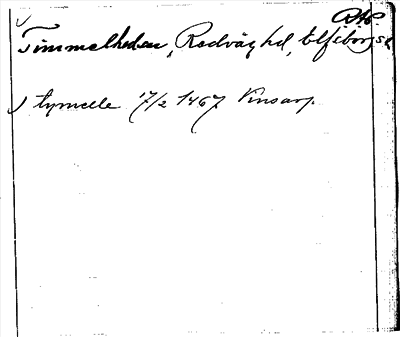 RAP.
Timmelheden, Redväg hd, Elfsborgs l
J tymelle 17/2 1467 Vinsarp